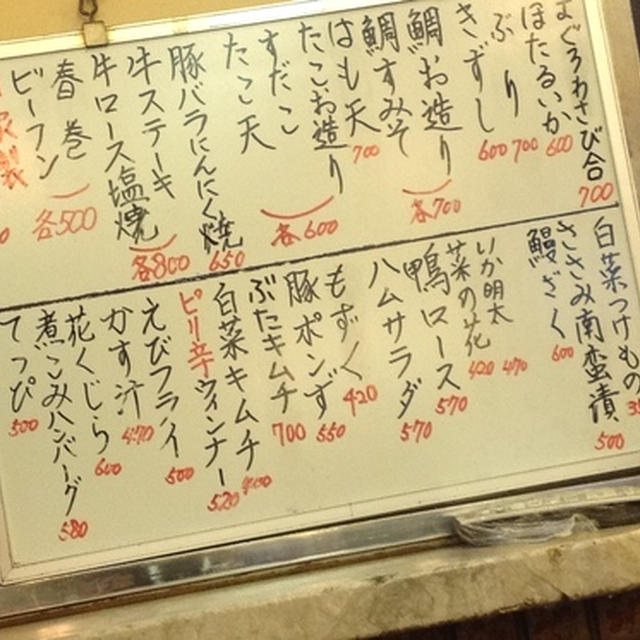 まぐろわさび合 700
ほたるいか 600
ぶり 700
きずし 600
鯛お造り
鯛すみそ
各700
はも天 700
たこお造り
すだこ
たこ天
各600
豚バラにんにく焼 650
牛ステーキ
牛ロース塩焼
各800
春巻
ビーフン
各500
製
白菜つけもの
ささみ南蛮漬 500
鰻ざく 600
いか明太 470
菜の花 420
鴨ロース 570
ハムサラダ 570
もずく 420
豚ポンず 550
ぶたキムチ 700
白菜キムチ 400
ピリ辛ウィンナー 520
えびフライ 500
かす汁 470
花くじら 600
煮こみハンバーグ 580
てっぴ 500